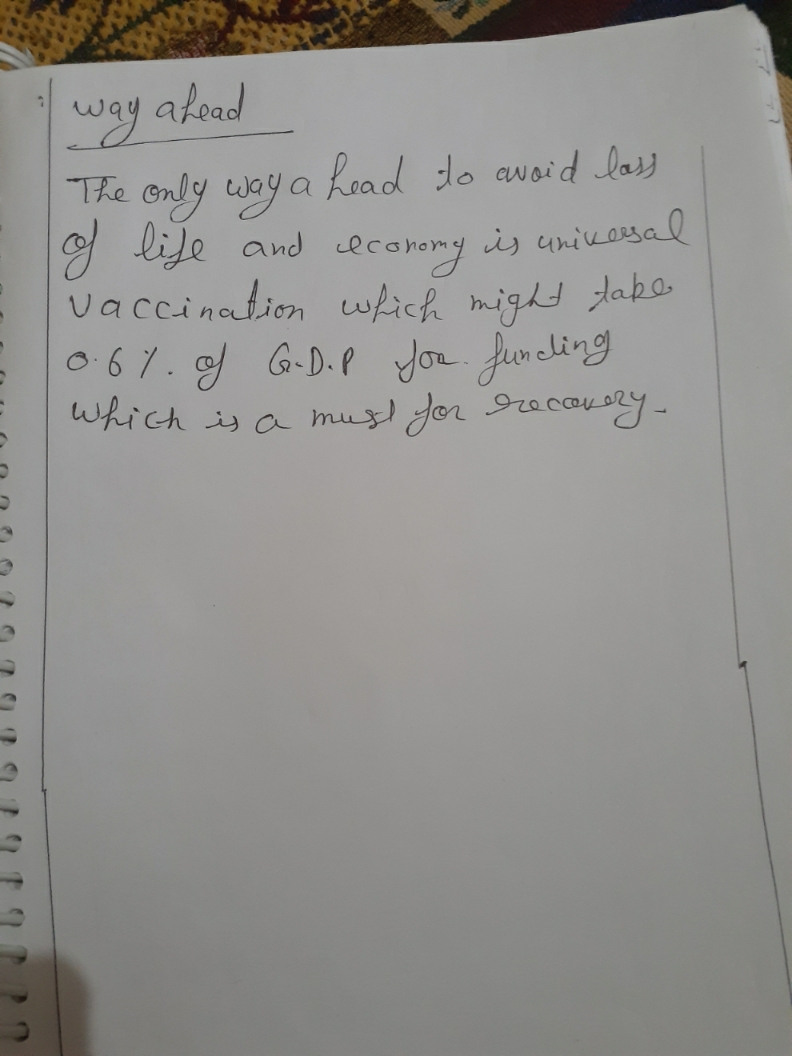 way ahead
The only way ahead to avoid loss
of life and economy is universal
vaccination which might take
0.6%. of G.D.P for funding
which is a must for recovery.